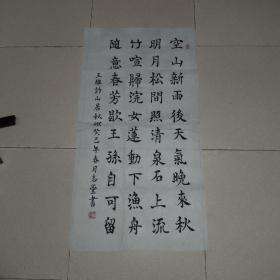 空山新雨後天氣晚來秋
明月松間照清泉石上流
竹喧歸浣女蓮動下漁舟
隨意春芳歇王孫自可留
王維詩山居秋暝癸巳年春月志堂書